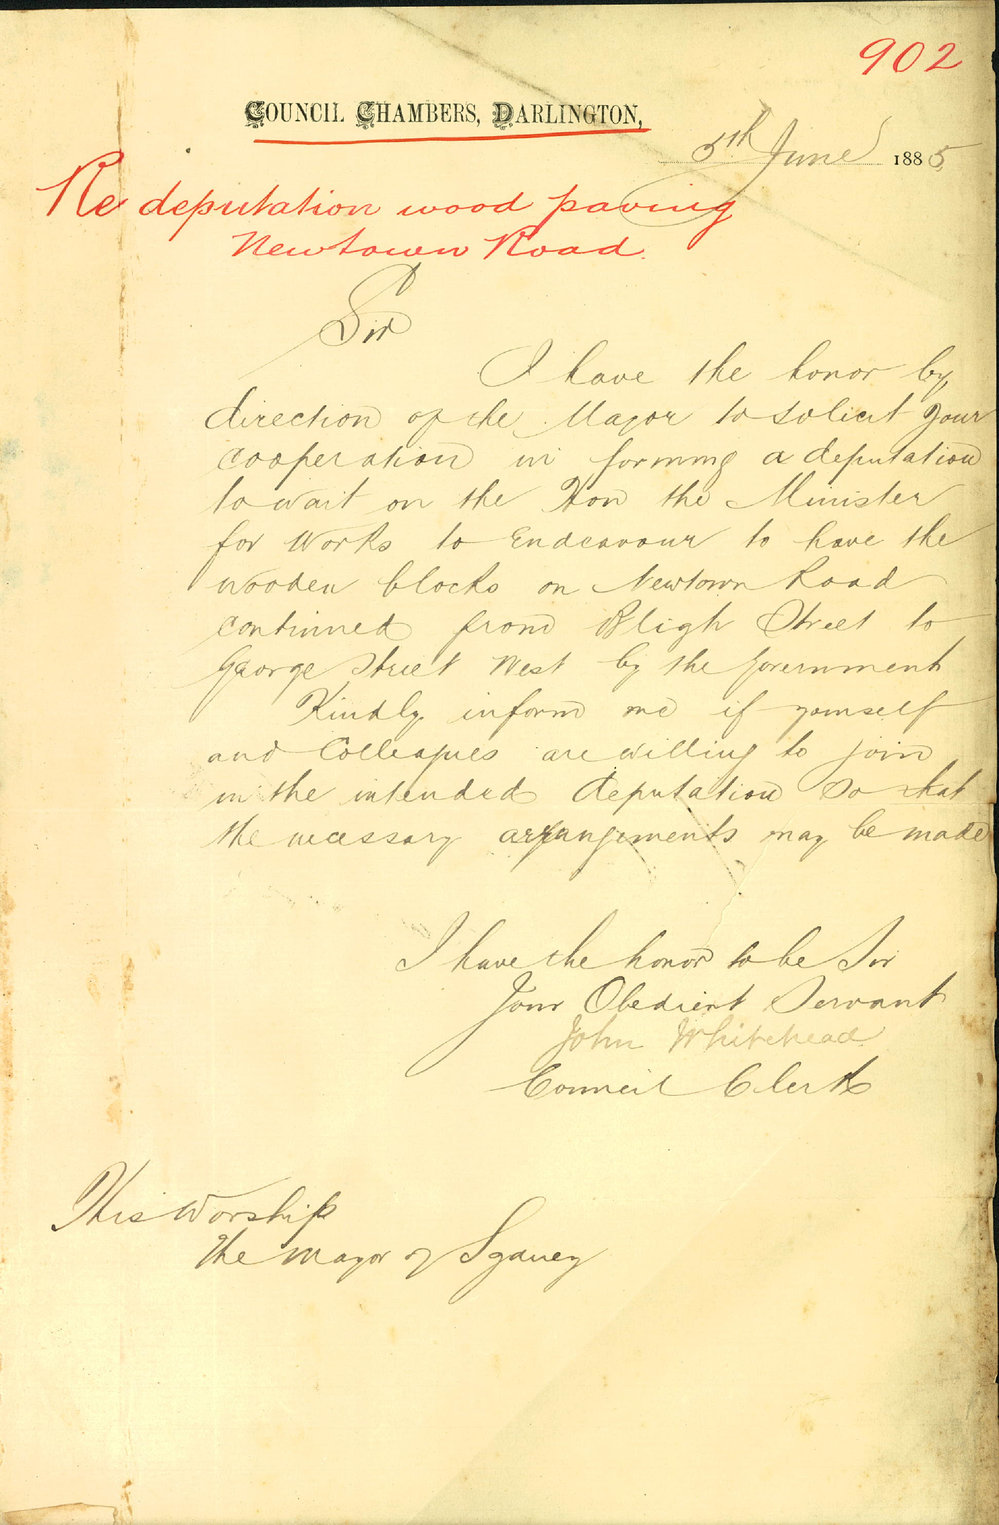 902
COUNCIL CHAMBERS, DARLINGTON,
5th June 1885
Re deputation wood paving
Newtown Road.
Sir
I have the honor by
direction of the Mayor to solicit your
cooperation in forming a deputation
to wait on the Hon the Minister
for Works to Endeavour to have the
wooden blocks on Newtown Road
continued from Bligh Street to
George Street West by the Government
Kindly inform me if yourself
and Colleagues are willing to join
in the intended deputation so that
the necessary arrangements may be made
I have the honor to be Sir
Your Obedient Servant
John Whitehead
Council Clerk
His Worship
The Mayor of Sydney